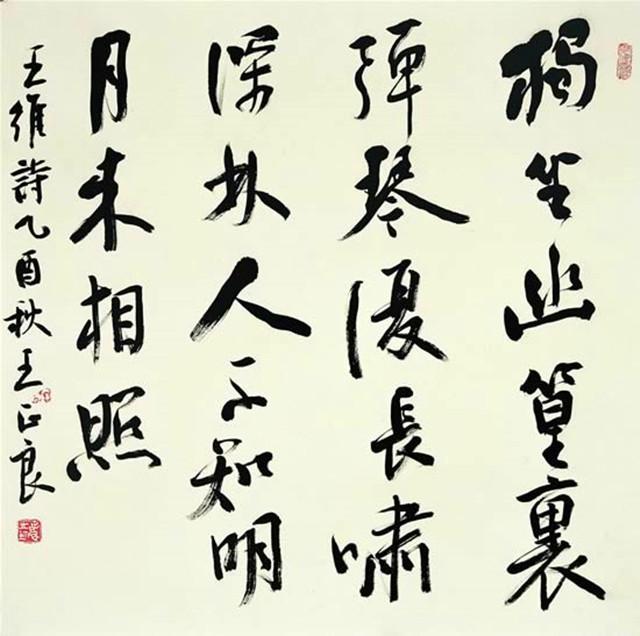 獨坐幽篁裏
彈琴復長嘯
深林人不知明
月来相照
王維詩乙酉秋王正良